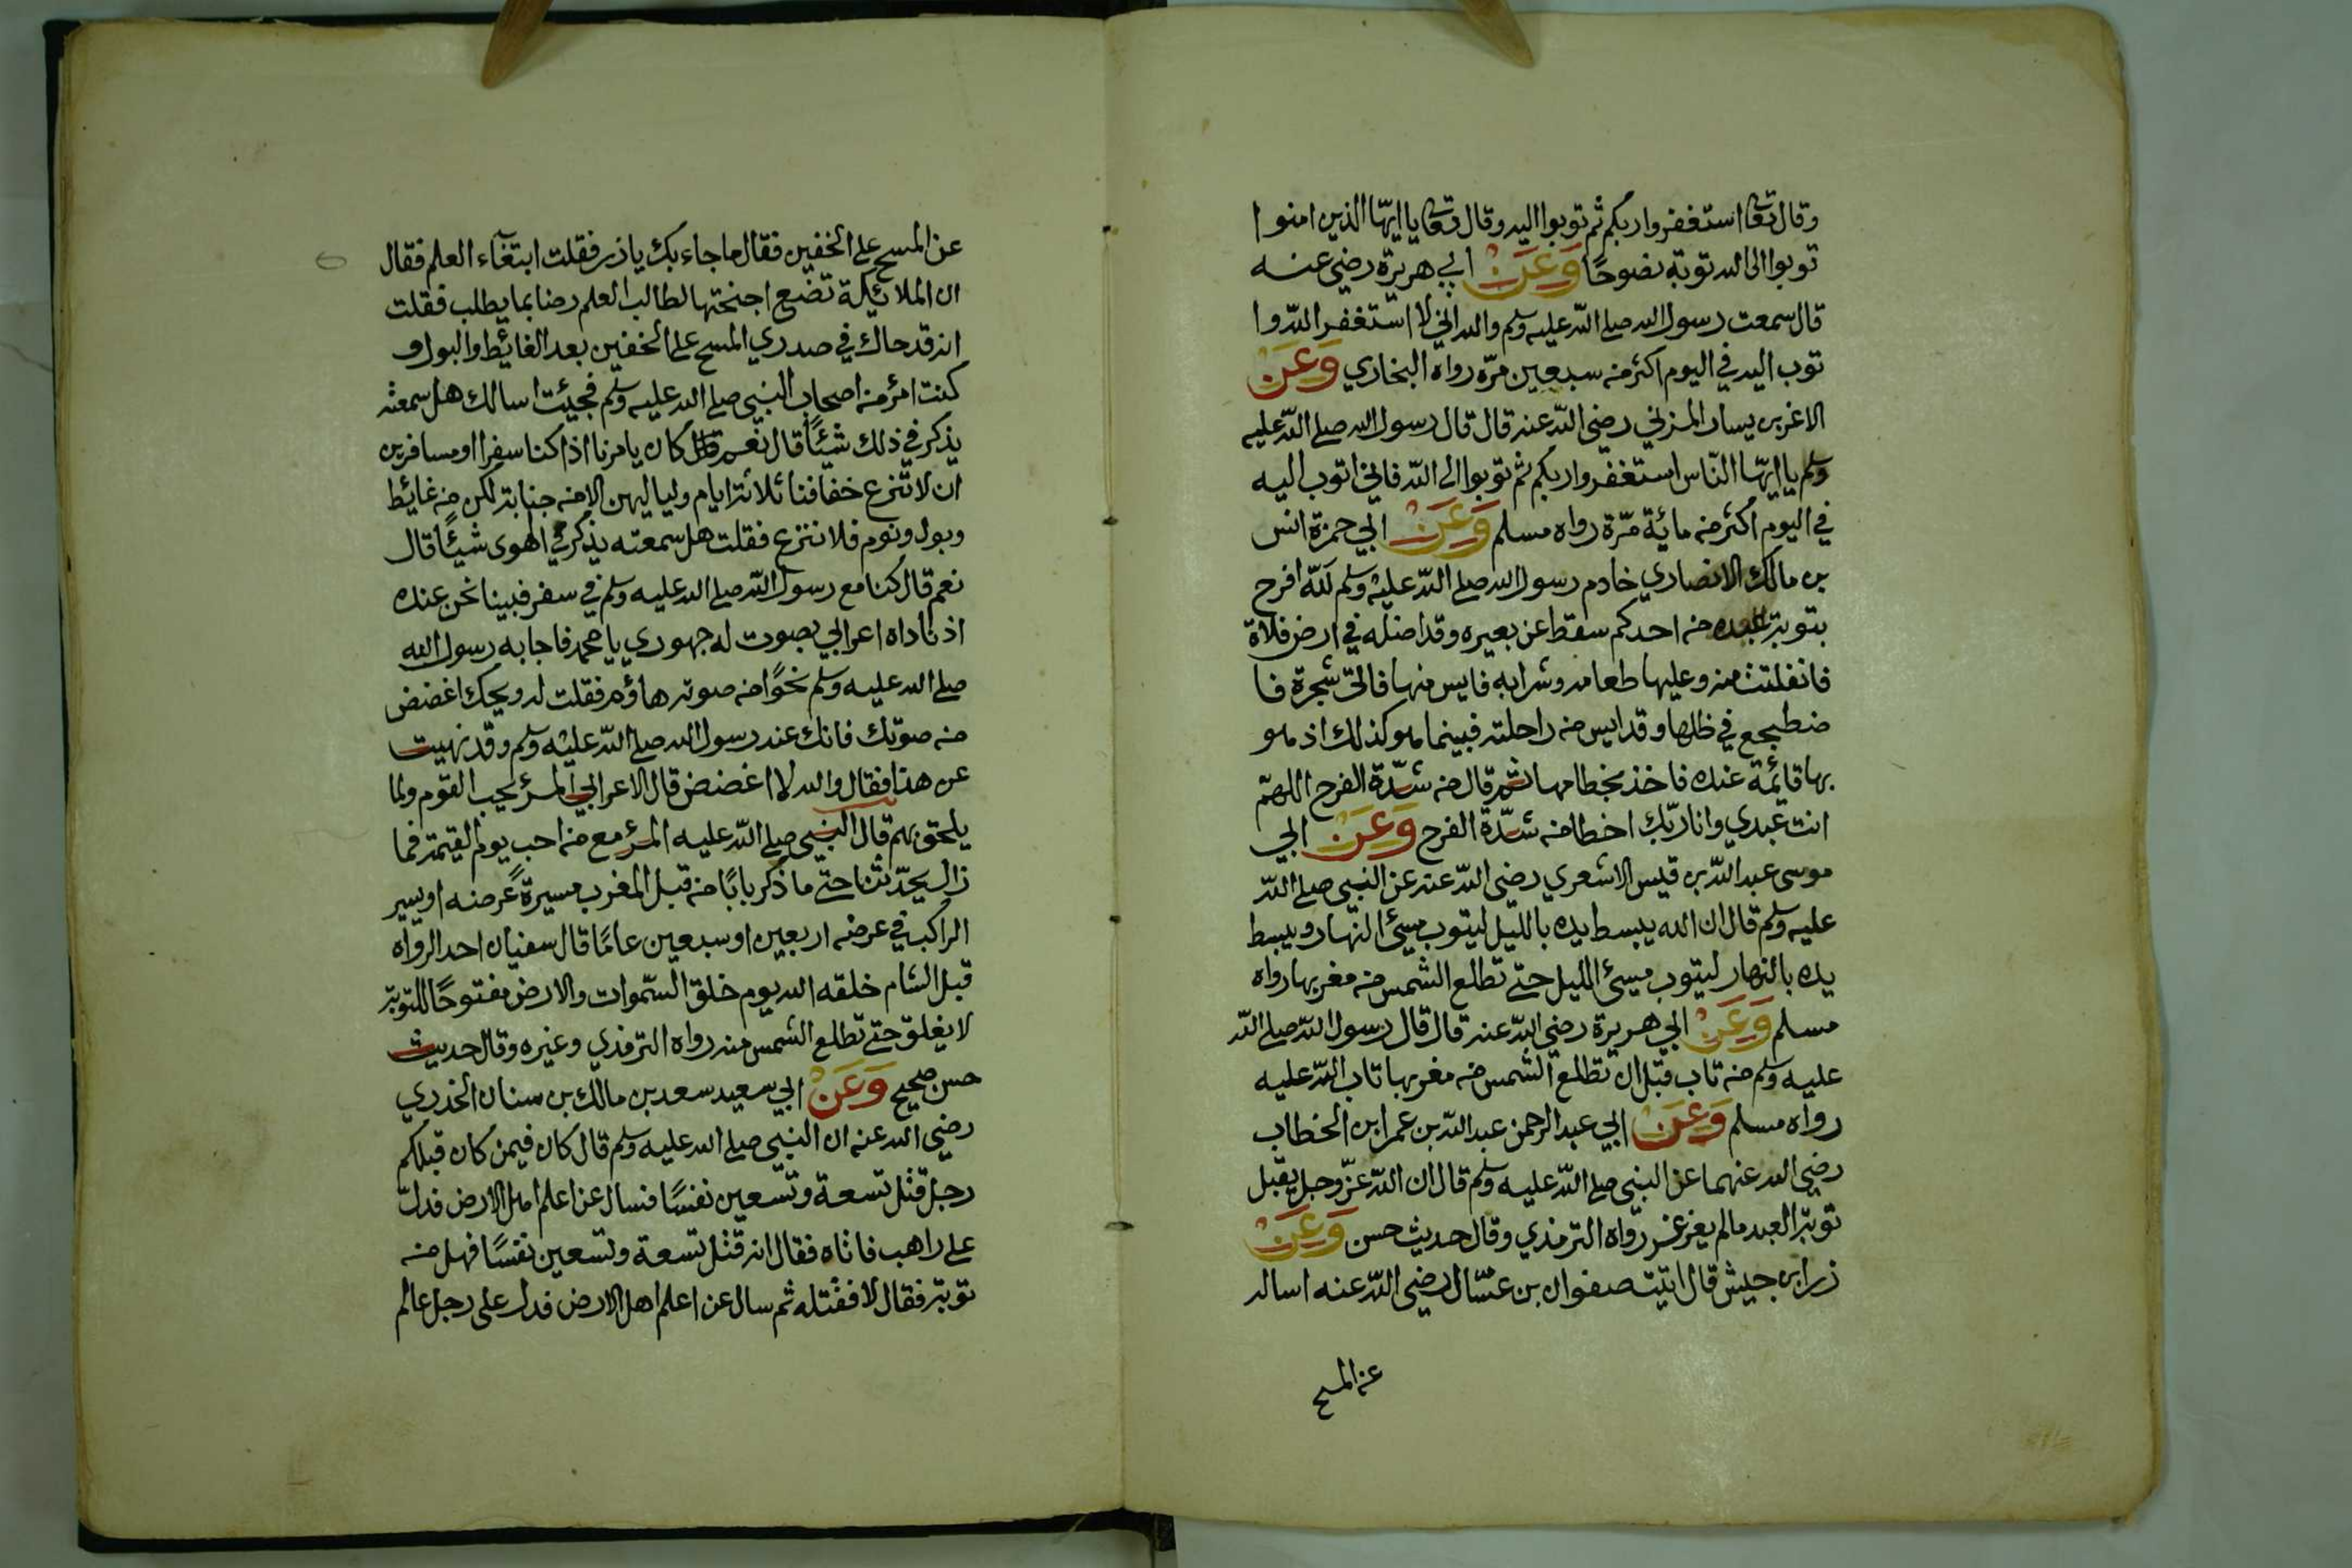 وقال تعا استغفروا ربكم ثم توبوا اليه وقال تعا يا ايها الذين امنوا
توبوا الى الله توبة نصوحًا وَعَنْ ابي هريرة رضي عنه
قال سمعت رسول الله صلى الله عليه وسلم والله اني لا استغفر الله وا
توب اليه في اليوم اكثر منه سبعين مرّة رواه البخاري وَعَنْ
الاغر بن يسار المزني رضي الله عنه قال قال رسول الله صلى الله عليه
وسلم يا ايها الناس استغفروا ربكم ثم توبوا الى الله فاني اتوب اليه
في اليوم اكثر من مائة مرّة رواه مسلم وَعَنْ ابي حمزة انس
بن مالك الانصاري خادم رسول الله صلى الله عليه وسلم لله افرح
بتوبة عبده من احدكم سقط عن بعيره وقد اضله في ارض فلاة
فانفلتت منه وعليها طعامه وشرابه فايس منها فاتى شجرة فا
ضطجع في ظلها وقد ايس من راحلته فبينما هو كذلك اذ هو
بها قايمة عنده فاخذ بخطامها ثم قال من شدّة الفرح اللهمّ
انت عبدي وانا ربّك اخطا من شدّة الفرح وَعَنْ ابي
موسى عبد الله بن قيس الاشعري رضي الله عنه عن النبي صلى الله
عليه وسلم قال ان الله يبسط يده بالليل ليتوب مسئ النهار ويبسط
يده بالنهار ليتوب مسئ الليل حتى تطلع الشمس من مغربها رواه
مسلم وَعَنْ ابي هريرة رضي الله عنه قال قال رسول الله صلى الله
عليه وسلم من تاب قبل ان تطلع الشمس من مغربها تاب الله عليه
رواه مسلم وَعَنْ ابي عبد الرحمن عبد الله بن عمر ابن الخطاب
رضي الله عنهما عن النبي صلى الله عليه وسلم قال ان الله عزّ وجل يقبل
توبة العبد مالم يغرغر رواه الترمذي وقال حديث حسن وَعَنْ
زر ابن حبيش قال اتيت صفوان بن عسّال رضي الله عنه اساله
عن المسح
عن المسح على الخفين فقال ما جاء بك يا زر فقلت ابتغاء العلم فقال
ان الملائكة تضع اجنحتها لطالب العلم رضا بما يطلب فقلت
انه قد حاك في صدري المسح على الخفين بعد الغائط والبول و
كنت امرؤ من اصحاب النبي صلى الله عليه وسلم فجيئت اسالك هل سمعته
يذكر في ذلك شيئًا قال نعم قال كان يامرنا اذا كنا سفرا او مسافرين
ان لا تنزع خفافنا ثلاثة ايام ولياليهن الا من جنابة لكن من غائط
وبول ونوم فلا ننزع فقلت هل سمعته يذكر في الهوى شيئًا قال
نعم قال كنا مع رسول الله صلى الله عليه وسلم في سفر فبينا نحن عنده
اذ ناداه اعرابي بصوت له جهوري يا محمد فاجابه رسول الله
صلى الله عليه وسلم نحوًا من صوته هاؤم فقلت له ويحك اغضض
من صوتك فانك عند رسول الله صلى الله عليه وسلم وقد نهيت
عن هذا فقال والله لا اغضض قال الاعرابي المرؤ يحب القوم ولما
يلحق بهم قال النبي صلى الله عليه المرؤ مع من احب يوم القيمة فما
زال يحدّثنا حتى ما ذكر بابًا من قبل المغرب مسيرة عرضه او يسير
الراكب في عرضه اربعين او سبعين عامًا قال سفيان احد الرواه
قبل الشام خلقه الله يوم خلق السموات والارض مفتوحًا للتوبة
لا يغلق حتى تطلع الشمس منه رواه الترمذي وغيره وقال حديث
حسن صحيح وَعَنْ ابي سعيد سعد بن مالك بن سنان الخدري
رضي الله عنه ان النبي صلى الله عليه وسلم قال كان فيمن كان قبلكم
رجل قتل تسعة وتسعين نفسًا فسال عن اعلم اهل الارض فدل
على راهب فاتاه فقال انه قتل تسعة وتسعين نفسًا فهل منه
توبة فقال لا فقتله ثم سال عن اعلم اهل الارض فدل على رجل عالم